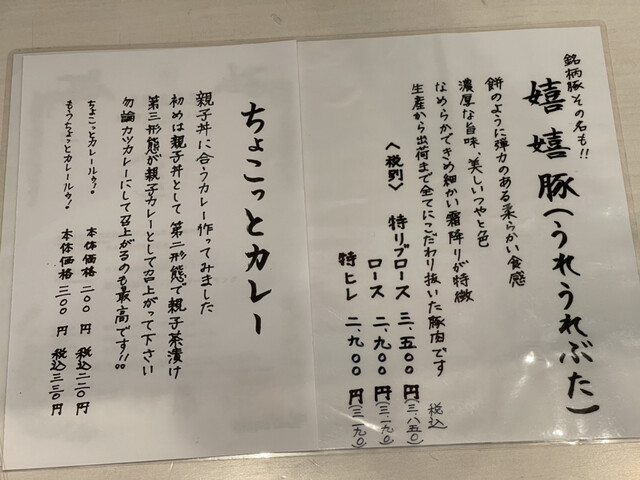 銘柄豚その名も!!
嬉嬉豚(うれうれぶた)
餅のように弾力のある柔らかい食感
濃厚な旨味、美しいつやと色
なめらかできめ細かい霜降りが特徴
生産から出荷まで全てにこだわり抜いた豚肉です
〈税別〉
税込
特リブロース 三、五〇〇円(三、八五〇)
ロース 二、九〇〇円(三、一九〇)
特ヒレ 二、九〇〇円(三一九〇)
ちょこっとカレー
親子丼に合うカレー作ってみました
初めは親子丼として 第二形態で親子茶漬け
第三形態が親子カレーとして召上がって下さい
勿論カツカレーにして召上がるのも最高です!!
ちょこっとカレールゥ! 本体価格 二〇〇円 税込二二〇円
もうちょっとカレールゥ! 本体価格 三〇〇円 税込三三〇円